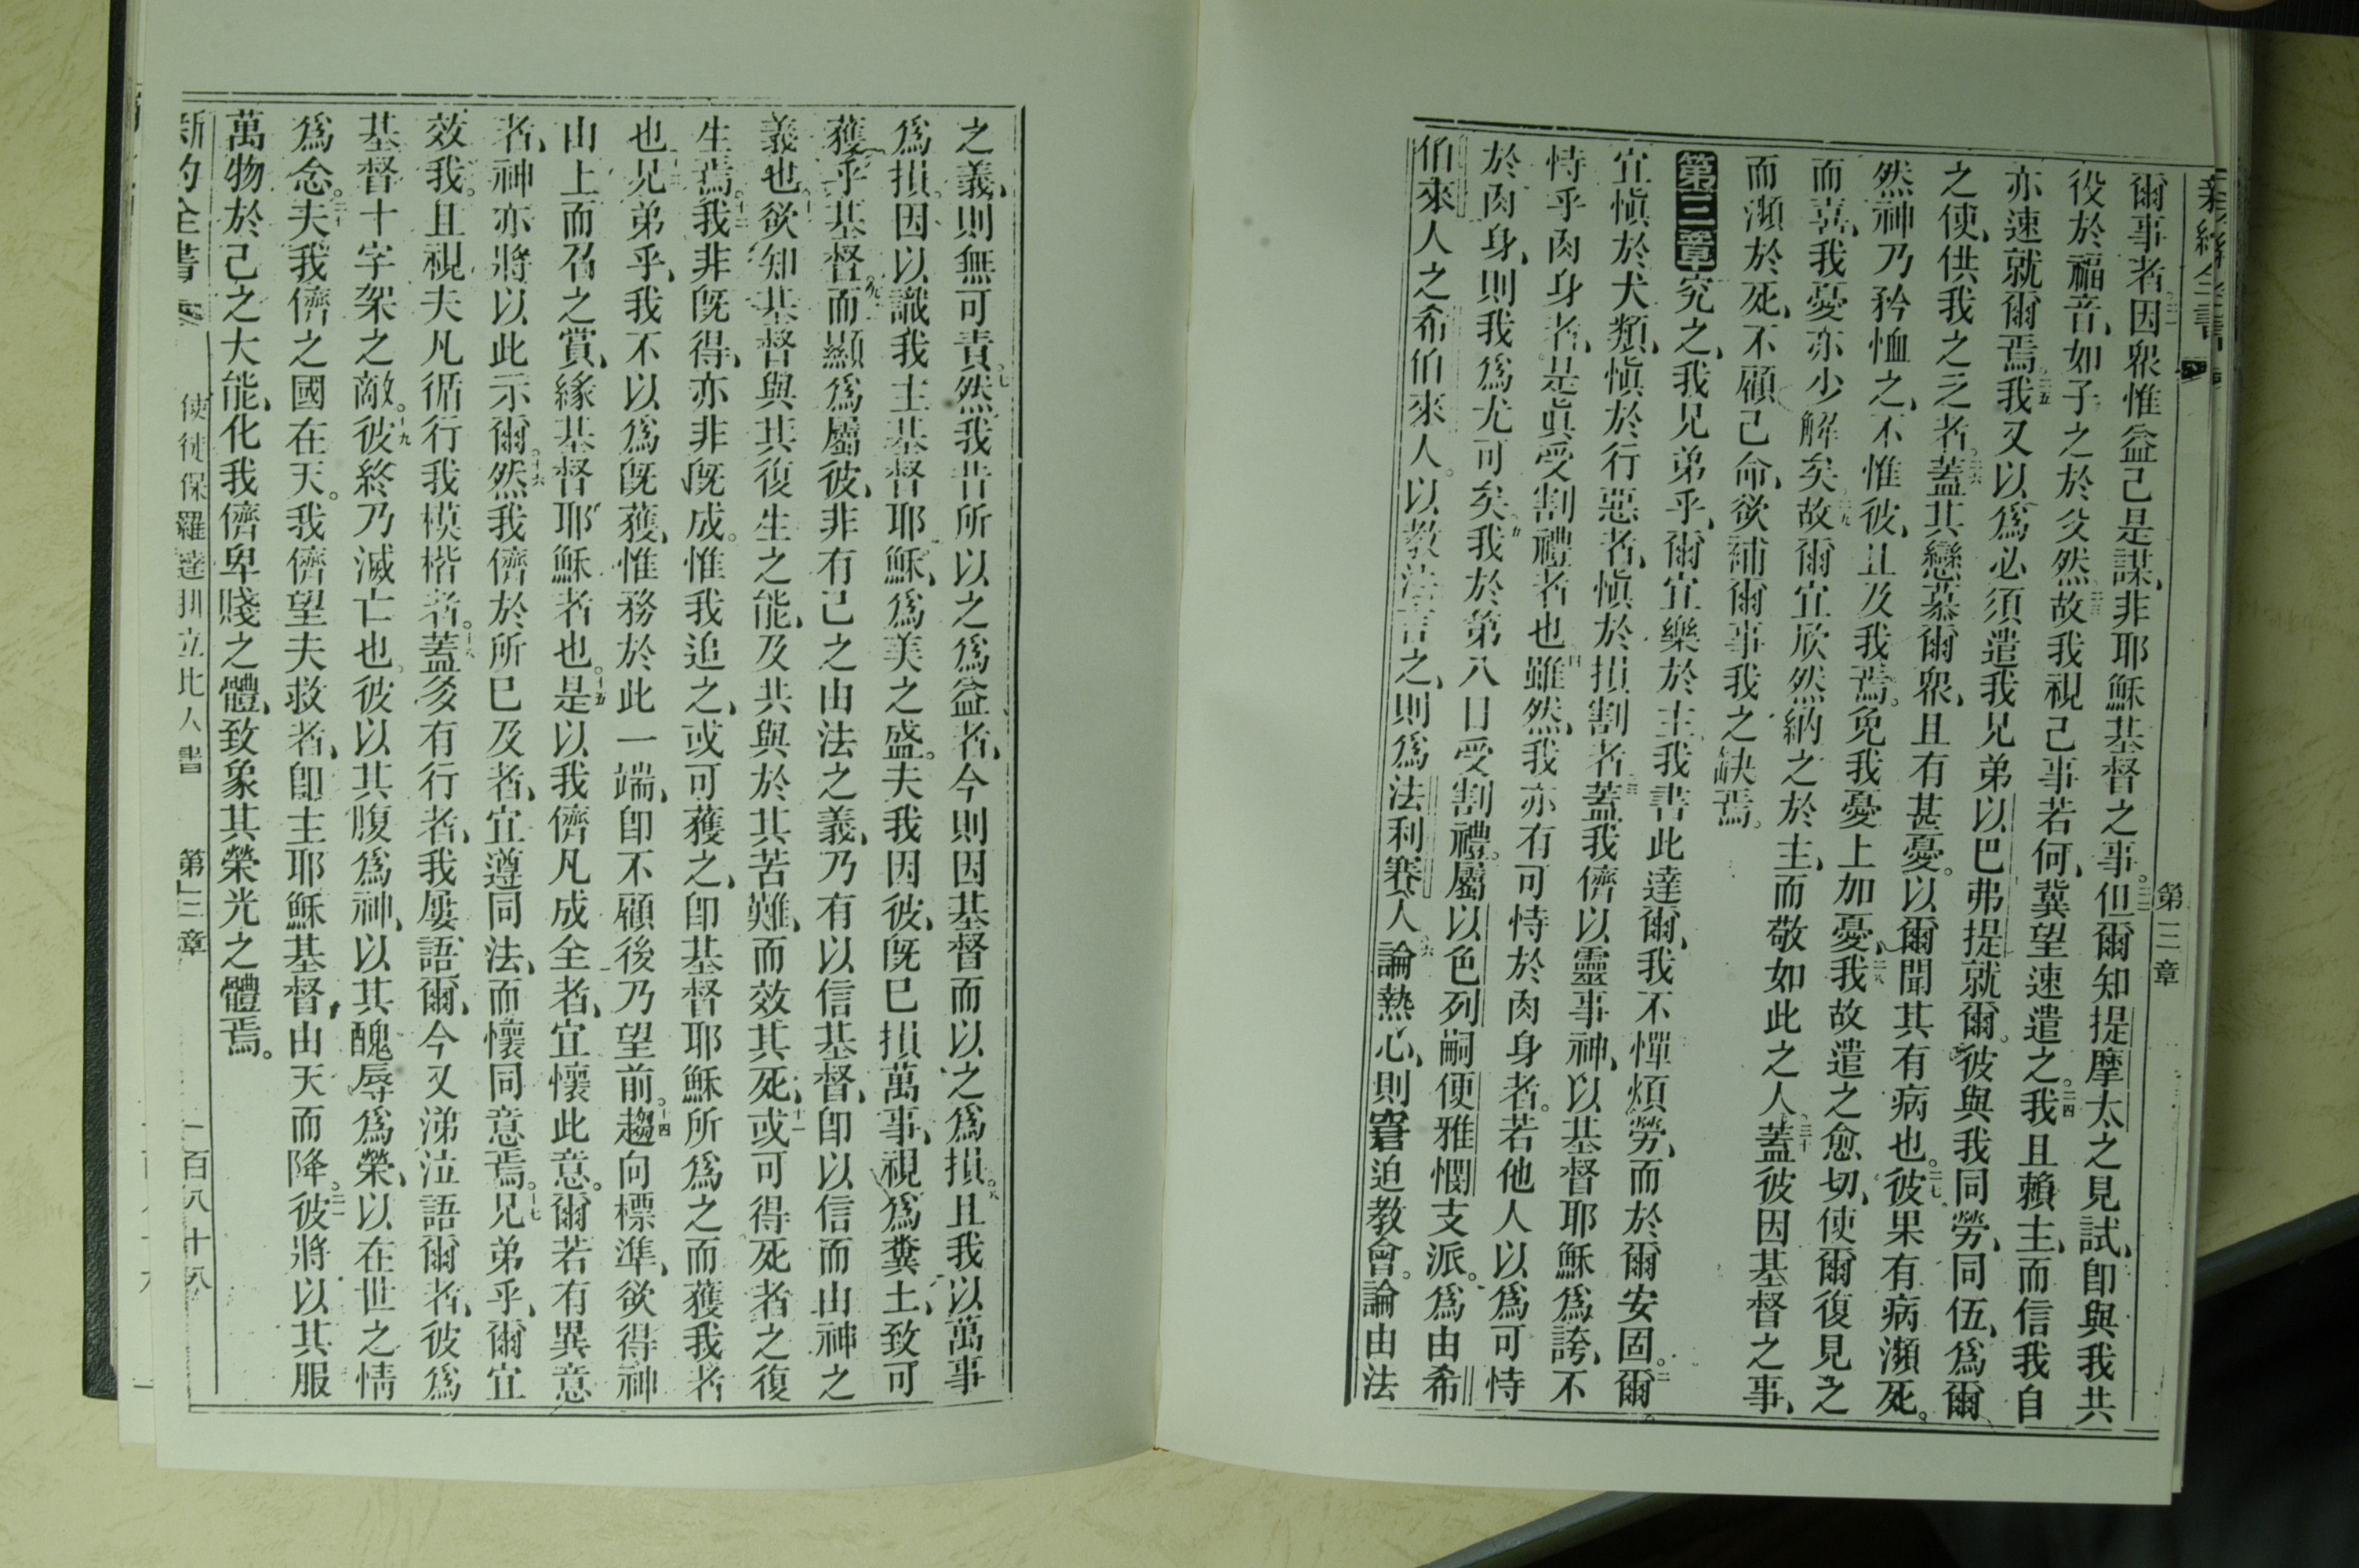 新約全書
第三章
爾事者因衆惟益己是謀、非耶穌基督之事。二二但爾知提摩太之見試、卽與我共
役於福音、如子之於父然二三故我視己事若何、冀望速遣之。二四我且賴主、而信我自
亦速就爾焉。二五我又以爲必須遣我兄弟以巴弗提就爾。彼與我同勞、同伍、爲爾
之使、供我之乏者。二六蓋其戀慕爾衆、且有甚憂。以爾聞其有病也。二七彼果有病瀕死。
然神乃矜恤之、不惟彼、且及我焉。免我憂上加憂、二八我故遣之愈切、使爾復見之
而喜、我憂亦少解矣二九故爾宜欣然納之於主、而敬如此之人。三十蓋彼因基督之事、
而瀕於死、不顧己命、欲補爾事我之缺焉。
第三章究之、我兄弟乎、爾宜樂於主我書此達爾、我不憚煩勞、而於爾安固。二爾
宜愼於犬類、愼於行惡者、愼於損割者三蓋我儕以靈事神、以基督耶穌爲誇、不
恃乎肉身者、是眞受割禮者也四雖然、我亦有可恃於肉身者。若他人以爲可恃
於肉身、則我爲尤可矣五我於第八日受割禮。屬以色列嗣便雅憫支派。爲由希
伯來人之希伯來人。以教法言之、則爲法利賽人六論熱心、則窘迫教會。論由法
之義、則無可責。七然我昔所以之爲益者、今則因基督而以之爲損。八且我以萬事
爲損。因以識我主基督耶穌、爲美之盛。夫我因彼、旣已損萬事、視爲糞土、致可
獲乎基督。九而顯爲屬彼、非有己之由法之義、乃有以信基督、卽以信而由神之
義也。十欲知基督與其復生之能、及共與於其苦難、而效其死、十一或可得死者之復
生焉。十二我非旣得、亦非旣成。惟我追之、或可獲之、卽基督耶穌所爲之而獲我者
也十三兄弟乎、我不以爲旣獲、惟務於此一端、卽不顧後乃望前。十四趨向標準、欲得神
由上而召之賞、緣基督耶穌者也。十五是以我儕凡成全者、宜懷此意。爾若有異意
者、神亦將以此示爾。十六然我儕於所已及者、宜遵同法、而懷同意焉。十七兄弟乎、爾宜
效我。且視夫凡循行我模楷者。十八蓋多有行者、我屢語爾、今又涕泣語爾者、彼爲
基督十字架之敵。十九彼終乃滅亡也。彼以其腹爲神、以其醜辱爲榮、以在世之情
爲念。二十夫我儕之國在天。我儕望夫救者、卽主耶穌基督、由天而降。二一彼將以其服
萬物於己之大能、化我儕卑賤之體、致象其榮光之體焉。
新約全書
使徒保羅達腓立比人書
第三章
一百八十八